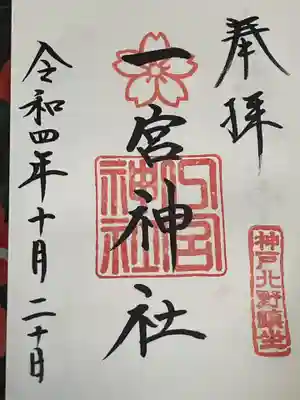 奉拝
神戸北野鎮坐
一宮神社
一宮神社
令和四年十月二十日